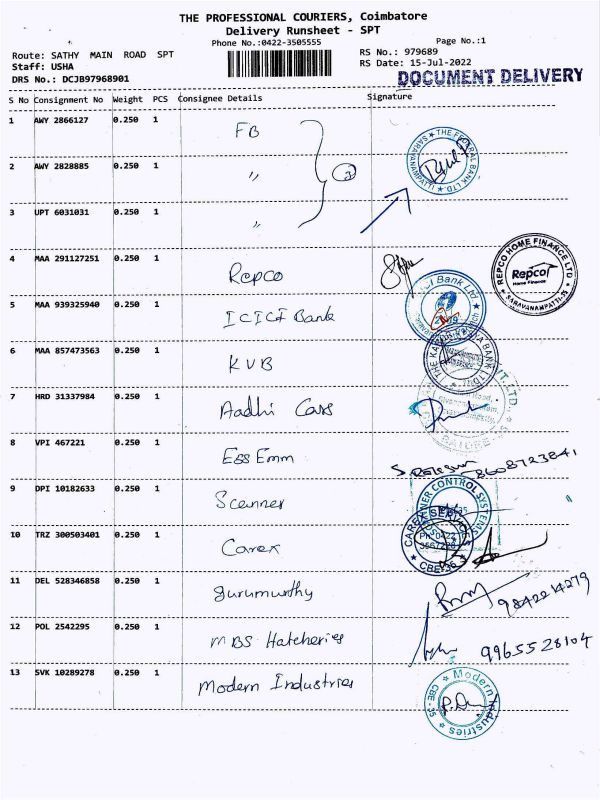 THE PROFESSIONAL COURIERS, Coimbatore
Delivery Runsheet - SPT
Phone No.:0422-3505555
Page No.:1
Route: SATHY MAIN ROAD SPT
RS No.: 979689
Staff: USHA
RS Date: 15-Jul-2022
DRS No.: DCJB97968901
DOCUMENT DELIVERY
S No Consignment No Weight PCS Consignee Details Signature
1 AWY 2866127 0.250 1 FB
THE FEDERAL BANK LTD. SARAVANAMPATTI
2 AWY 2828885 0.250 1 〃 3
3 UPT 6031031 0.250 1 〃
4 MAA 291127251 0.250 1 Repco
REPCO HOME FINANCE LTD
Repco
Home Finance
SARAVANAMPATTI-35
5 MAA 939325940 0.250 1 ICICI Bank
ICICI Bank Ltd
6 MAA 857473563 0.250 1 KVB
THE KARUR VYSYA BANK LTD
7 HRD 31337984 0.250 1 Aadhi Cars
8 VPI 467221 0.250 1 Ess Emm
8608723841
9 DPI 10182633 0.250 1 Scanner
CONTROL SYSTEMS
10 TRZ 300503401 0.250 1 Carex
CAREX SERVICE
CBE-35
11 DEL 528346858 0.250 1 gurumurthy
9842214279
12 POL 2542295 0.250 1 MBS Hatcheries
9965528104
13 SVK 10289278 0.250 1 Modern Industries
Modern Industries
CBE-35